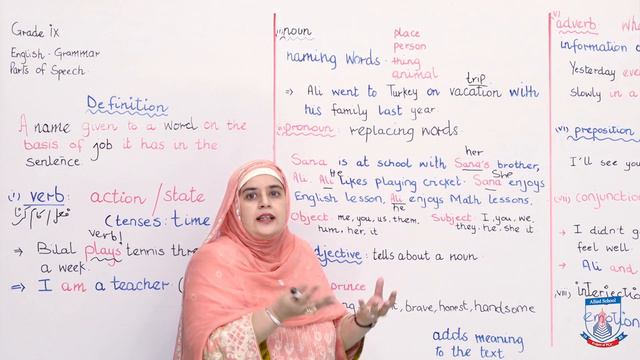 Grade ix
English - Grammar
Parts of Speech.
Definition
A name given to a word on the
basis of job it has in the
sentence
(i) verb: action / state
(tenses: time
verb!
⇒ Bilal plays tennis thre
a week.
⇒ I am a teacher. (
noun
naming words.
place
person
thing
animal
trip
⇒ Ali went to Turkey on vacation with
his family last year.
pronoun: replacing words
her
Sana is at school with Sana's brother,
He
She
Ali. Ali likes playing cricket. Sana enjoys
English lesson. Ali enjoys Math lessons.
he
Object: me, you, us, them,
him, her, it
Subject: I, you, we,
they, he, she it
djective: tells about a noun
brave, honest, handsome
adds meaning
to the text
v)
adverb wh
information
Yesterday eve
slowly in a
(vi) preposition
I'll see you
(vii) conjunction
→ I didn't g
feel well.
→ Ali and
(viii) interjection
emotion
Allied School